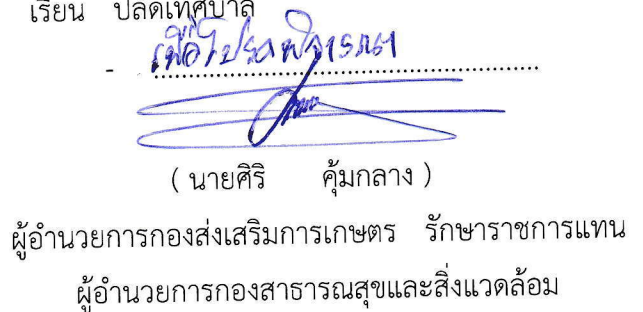 เรียน ปลัดเทศบาล
- เพื่อโปรดพิจารณา
( นายศิริ คุ้มกลาง )
ผู้อำนวยการกองส่งเสริมการเกษตร รักษาราชการแทน
ผู้อำนวยการกองสาธารณสุขและสิ่งแวดล้อม